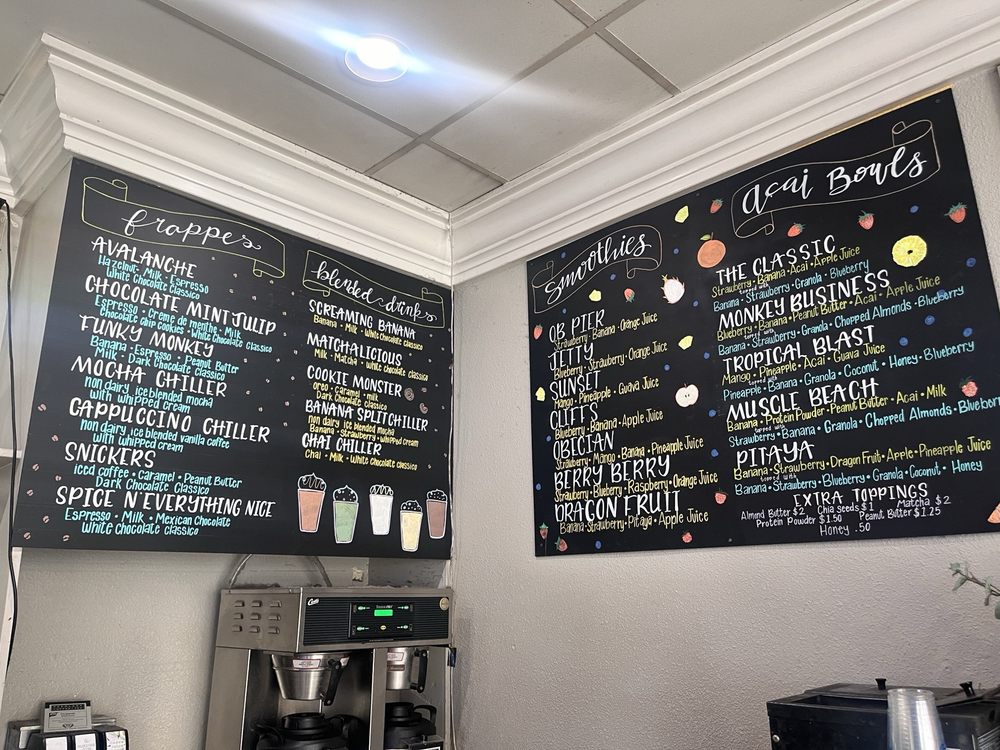 frappes
AVALANCHE
Hazelnut · Milk · Espresso
White Chocolate Classico
CHOCOLATE MINT JULIP
Espresso · Crème de menthe · Milk
Chocolate chip cookies · White Chocolate classico
FUNKY MONKEY
Banana · Espresso · Peanut Butter
Milk · Dark Chocolate Classico
MOCHA CHILLER
non dairy ice blended mocha
with whipped cream
CAPPUCCINO CHILLER
non dairy ice blended vanilla coffee
with whipped cream
SNICKERS
iced Coffee · Caramel · Peanut Butter
Dark Chocolate Classico
SPICE N' EVERYTHING NICE
Espresso · Milk · Mexican Chocolate
White Chocolate Classico
blended drinks
SCREAMING BANANA
Banana · Milk · White Chocolate classico
MATCHALICIOUS
Milk · Matcha · White Chocolate classico
COOKIE MONSTER
oreo · Caramel · milk
Dark Chocolate classico
BANANA SPLIT CHILLER
non dairy ice blended mocha
Banana · Strawberry · whipped cream
CHAI CHILLER
Chai · Milk · White chocolate classico
Smoothies
OB PIER
Strawberry · Banana · Orange Juice
JETTY
Blueberry · Strawberry · Orange Juice
SUNSET
Mango · Pineapple · Guava Juice
CLIFFS
Blueberry · Banana · Apple Juice
OBECIAN
Strawberry · Mango · Banana · Pineapple Juice
BERRY BERRY
Strawberry · Blueberry · Raspberry · Orange Juice
DRAGON FRUIT
Banana · Strawberry · Pitaya · Apple Juice
Acai Bowls
THE CLASSIC
Strawberry · Banana · Acai · Apple Juice
topped with
Banana · Strawberry · Granola · Blueberry
MONKEY BUSINESS
Blueberry · Banana · Peanut Butter · Acai · Apple Juice
topped with
Banana · Strawberry · Granola · Chopped Almonds · Blueberry
TROPICAL BLAST
Mango · Pineapple · Acai · Guava Juice
topped with
Pineapple · Banana · Granola · Coconut · Honey · Blueberry
MUSCLE BEACH
Banana · Protein Powder · Peanut Butter · Acai · Milk
topped with
Strawberry · Banana · Granola · Chopped Almonds · Blueberry
PITAYA
Banana · Strawberry · Dragon Fruit · Apple · Pineapple Juice
topped with
Banana · Strawberry · Blueberry · Granola · Coconut · Honey
EXTRA TOPPINGS
Almond Butter $2 Chia Seeds $1 Matcha $2
Protein Powder $1.50 Peanut Butter $1.25
Honey .50
Curtis